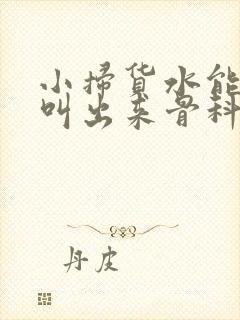 小掃货水能
叫出来骨科
丹皮